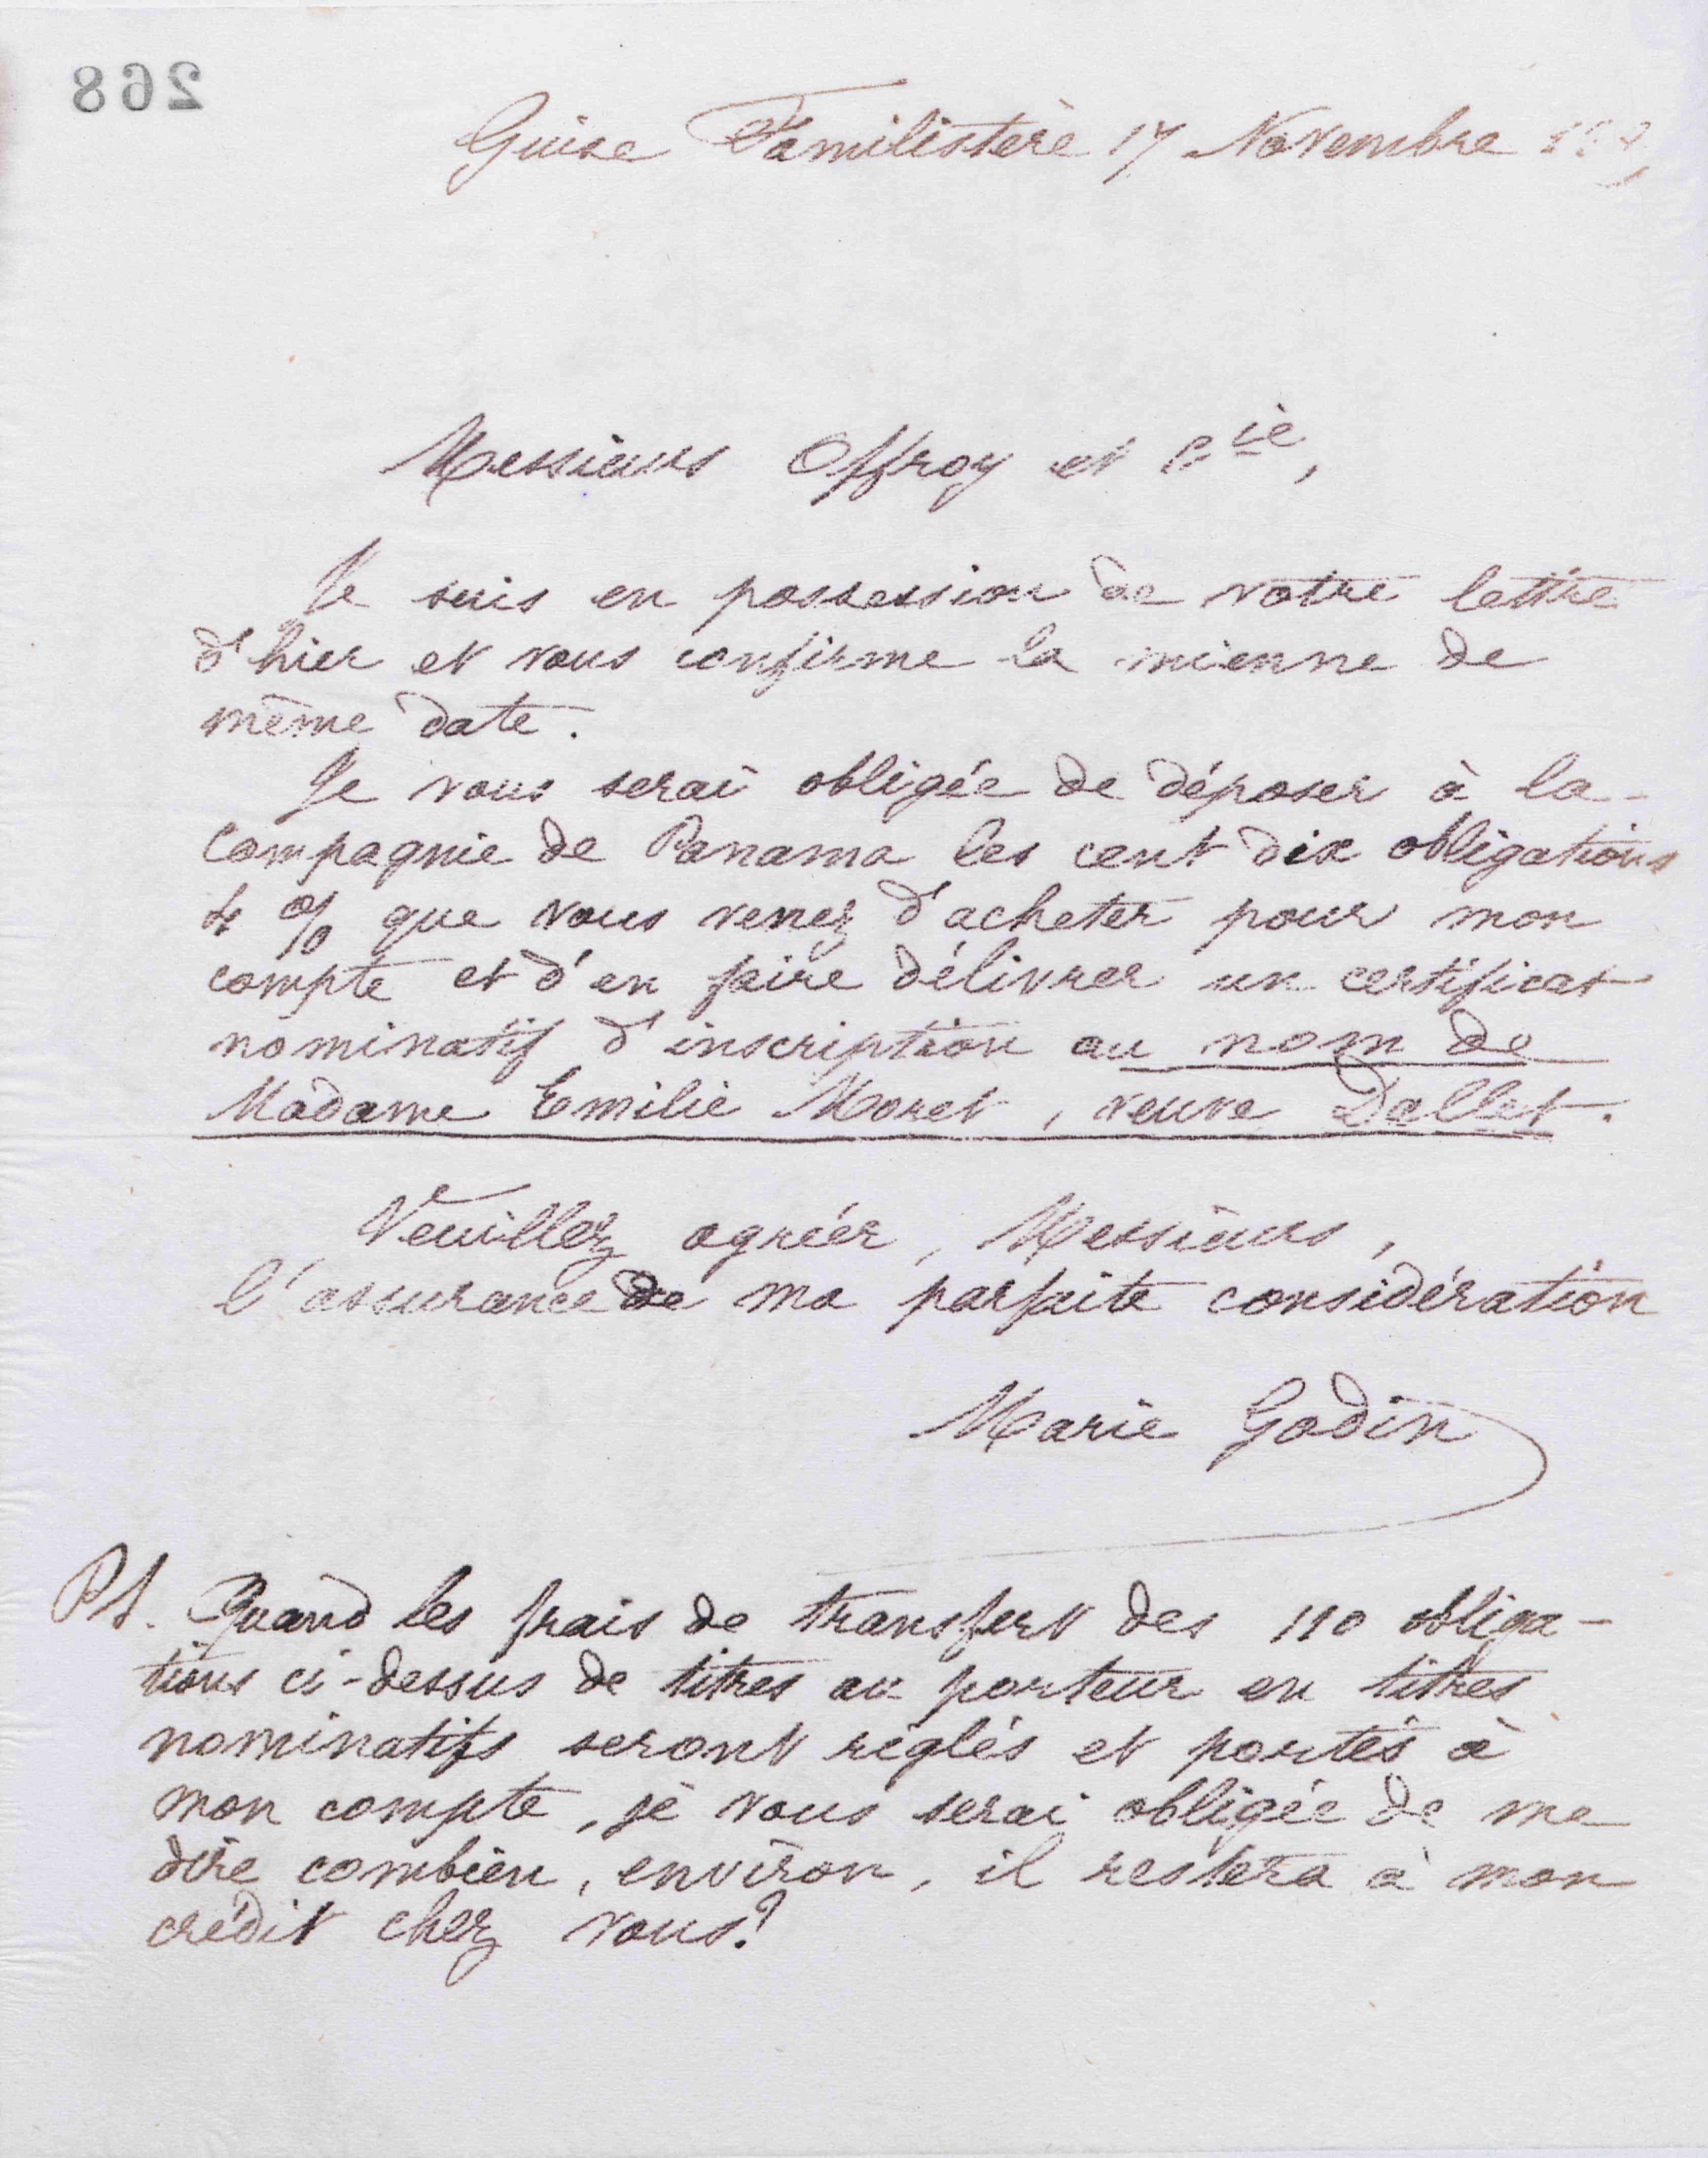 268
Guise Familistère 17 Novembre
Messieurs Offroy et Cie,
Je suis en possession de votre lettre
d'hier et vous confirme la mienne de
même date.
Je vous serai obligée de déposer à la
Compagnie de Panama les cent dix obligations
4 % que vous venez d'acheter pour mon
compte et d'en faire délivrer un certificat
nominatif d'inscription au nom de
Madame Emilie Moret, veuve Dallet.
Veuillez agréer, Messieurs,
l'assurance de ma parfaite considération
Marie Godin
PS. Quand les frais de transfert des 110 obliga-
tions ci-dessus de titres au porteur en titres
nominatifs seront réglés et portés à
mon compte, je vous serai obligée de me
dire combien, environ, il restera à mon
crédit chez vous?